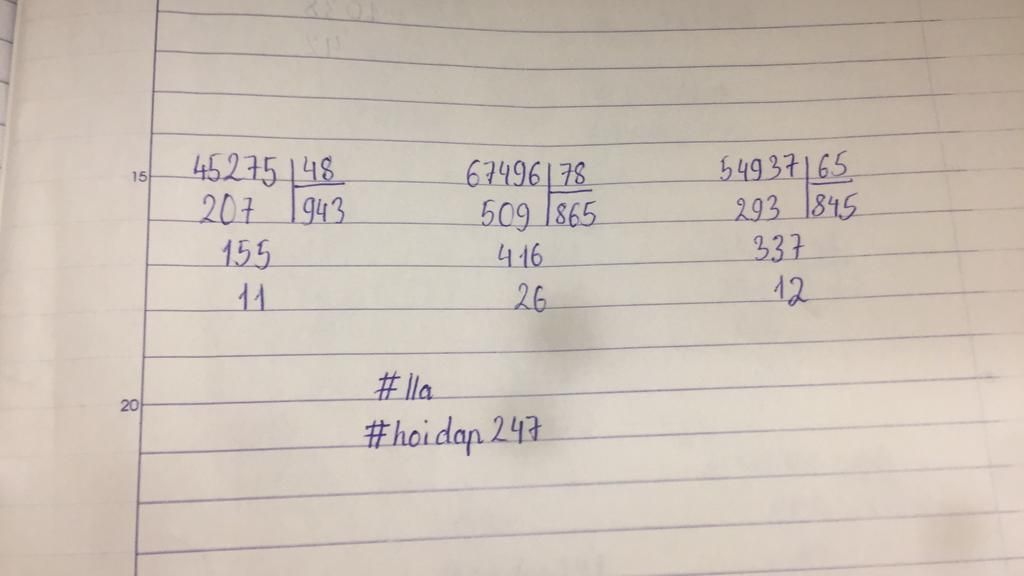 45275 48 67496 78 54937 65
207 943 509 865 293 845
155 416 337
11 26 12
#lla
#hoidap247
15
20